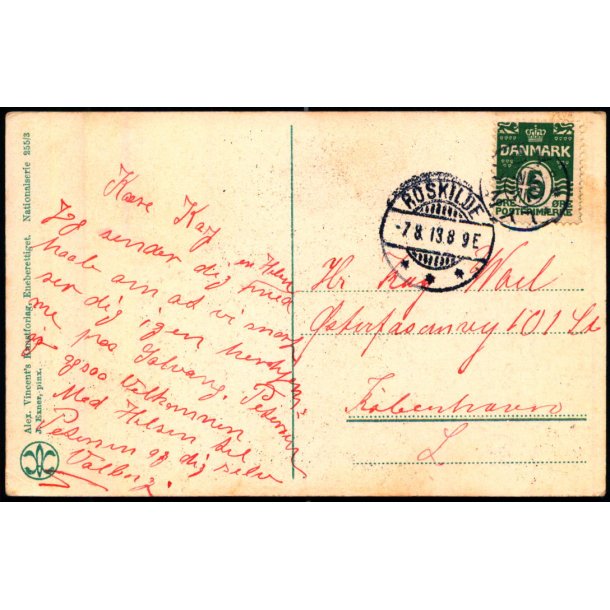 Alex. Vincent's Kunstforlag. Eneberettiget. Nationalserie 255/3
J. Exner, pinx.
Kære Kay
Jeg sender dig hved en Hilsen
haabe om at vi snart
ser dig igen herhjem-
me paa Solvang. Petersen
er ogsoo Velkommen
Med Hilsen til
Petersen og dig selv
Valborg.
DANMARK
5
ØRE ØRE
POSTFRIMÆRKE
ROSKILDE
-7.8.13.8-9E
Hr Kay
Østerfasanvej 101 St
København
L